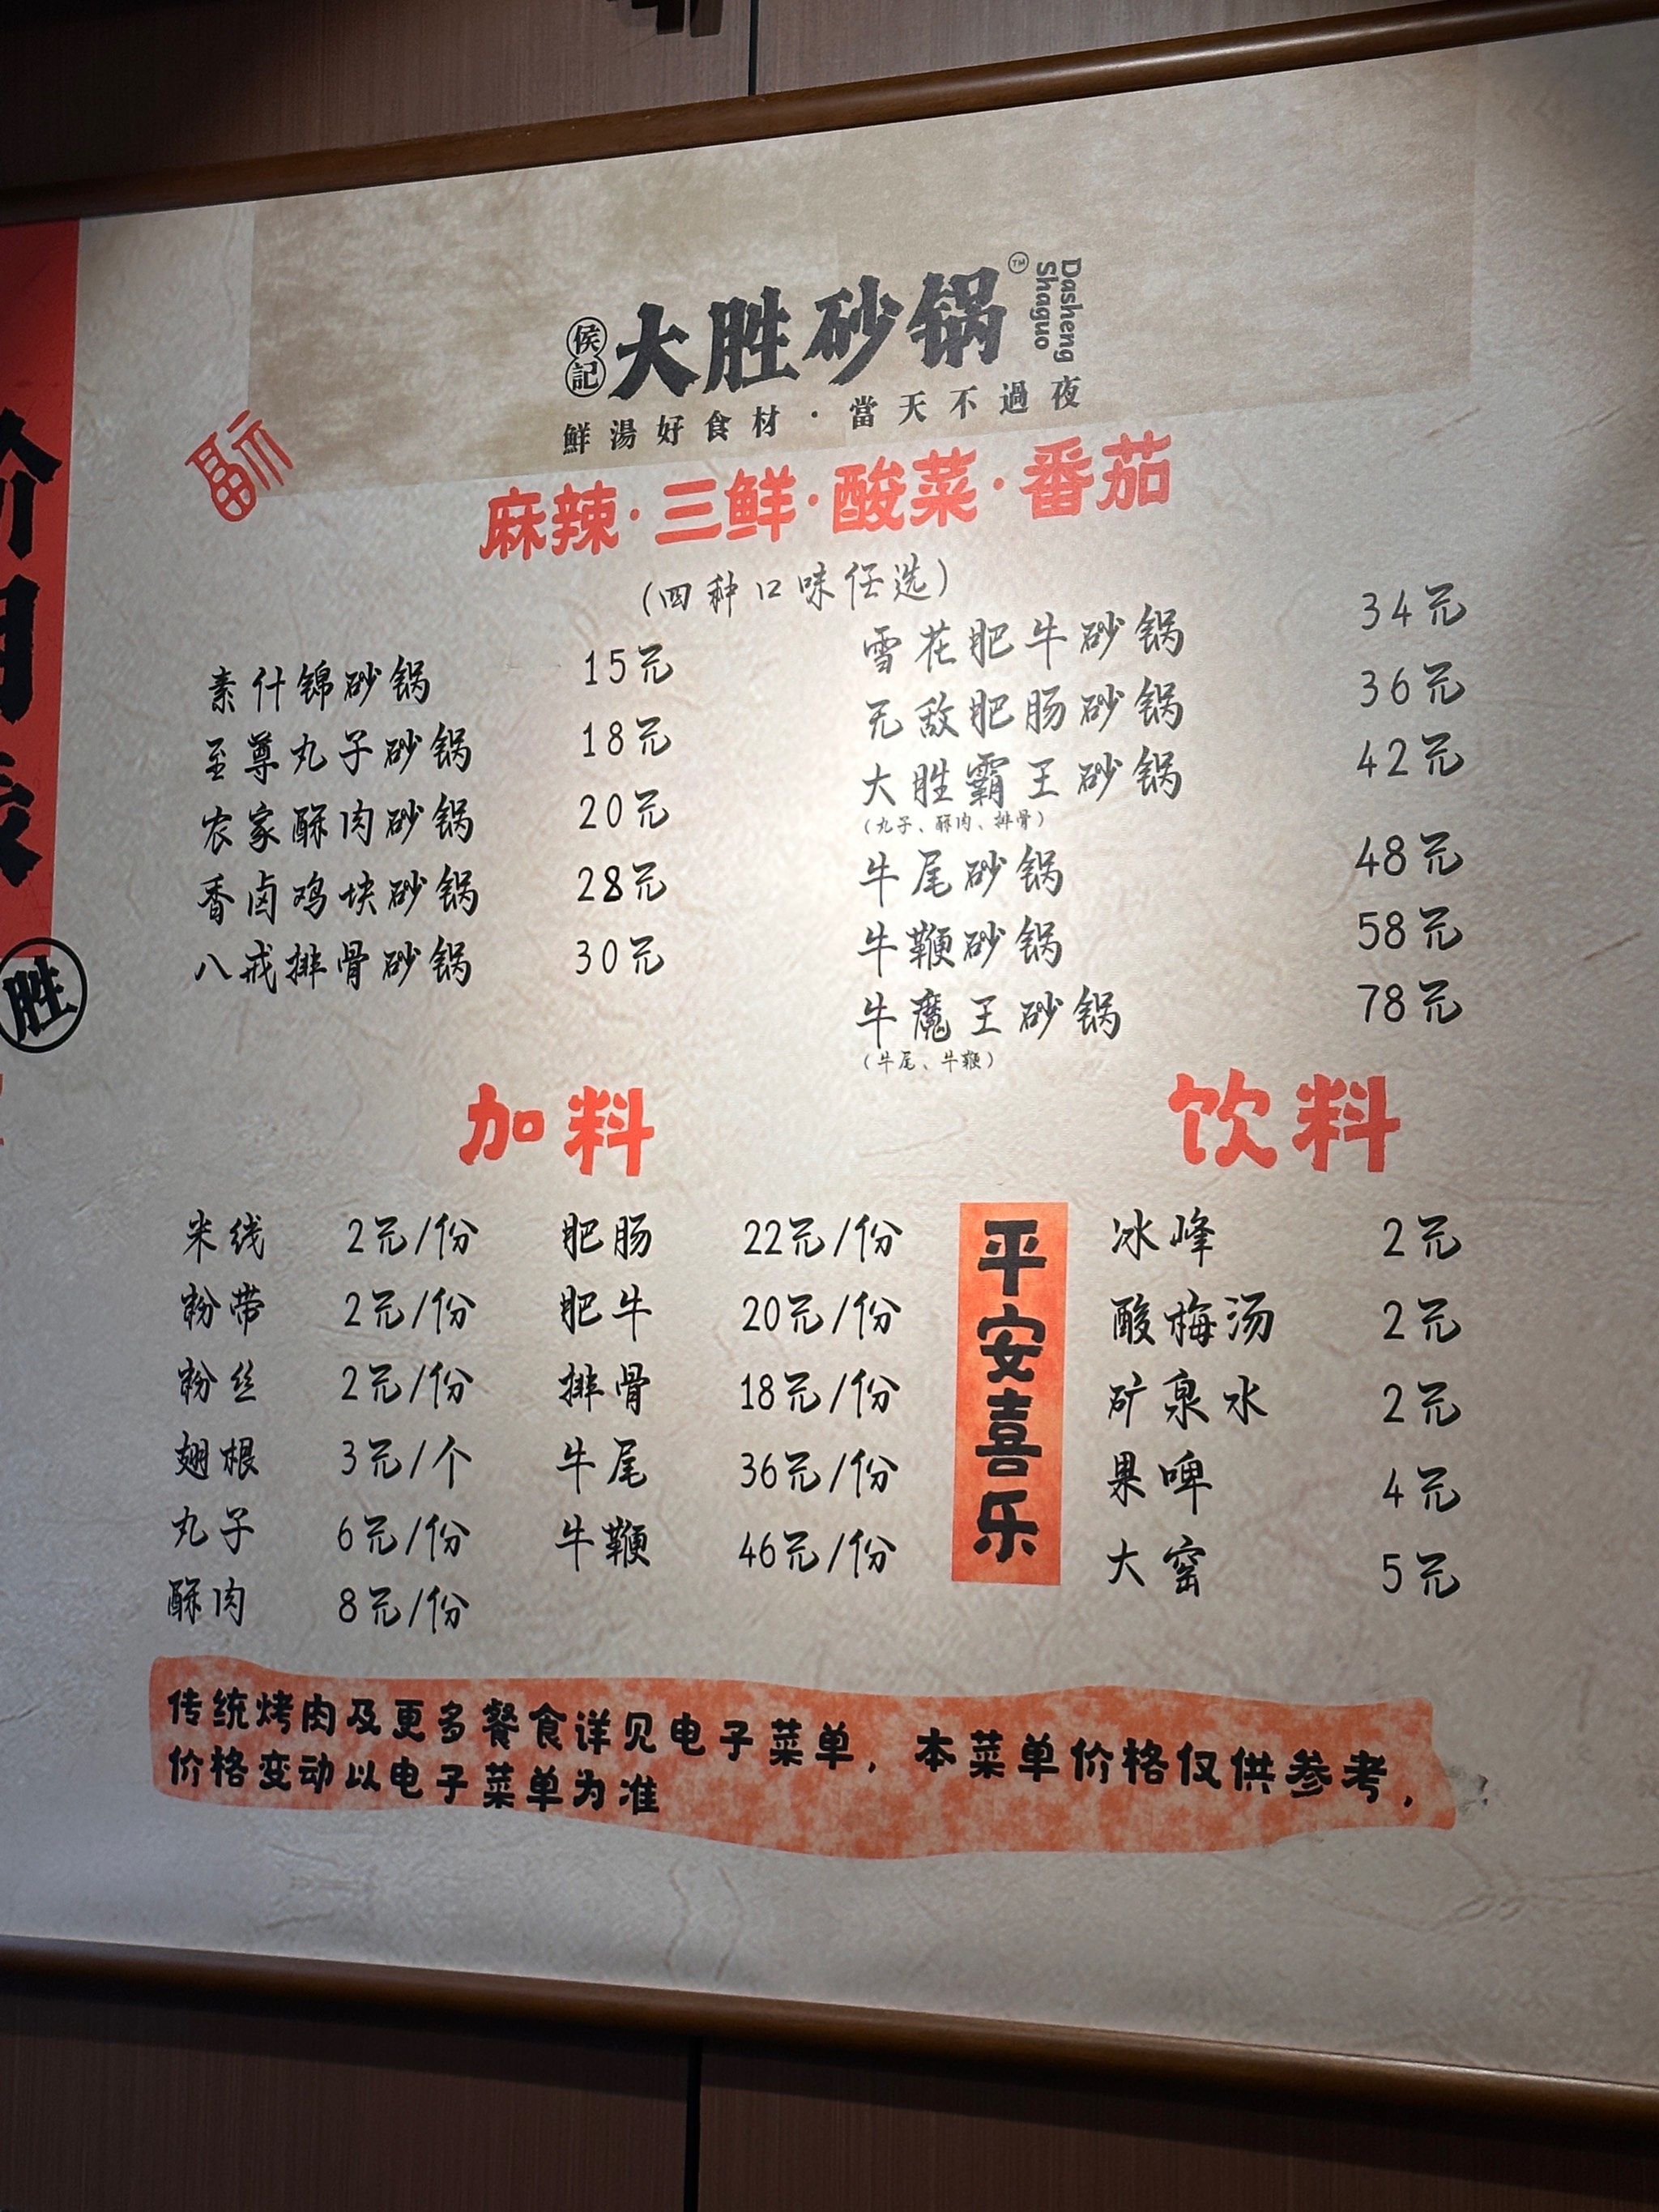 侯記
大胜砂锅
TM
Dasheng
Shaguo
鮮湯好食材·當天不過夜
福
麻辣·三鲜·酸菜·番茄
(四种口味任选)
素什锦砂锅 15元
至尊丸子砂锅 18元
农家酥肉砂锅 20元
香卤鸡块砂锅 28元
八戒排骨砂锅 30元
雪花肥牛砂锅 34元
无敌肥肠砂锅 36元
大胜霸王砂锅 42元
(丸子、酥肉、排骨)
牛尾砂锅 48元
牛鞭砂锅 58元
牛魔王砂锅 78元
(牛尾、牛鞭)
胜
加料
米线 2元/份
粉带 2元/份
粉丝 2元/份
翅根 3元/个
丸子 6元/份
酥肉 8元/份
肥肠 22元/份
肥牛 20元/份
排骨 18元/份
牛尾 36元/份
牛鞭 46元/份
平安喜乐
饮料
冰峰 2元
酸梅汤 2元
矿泉水 2元
果啤 4元
大窑 5元
传统烤肉及更多餐食详见电子菜单，本菜单价格仅供参考，
价格变动以电子菜单为准